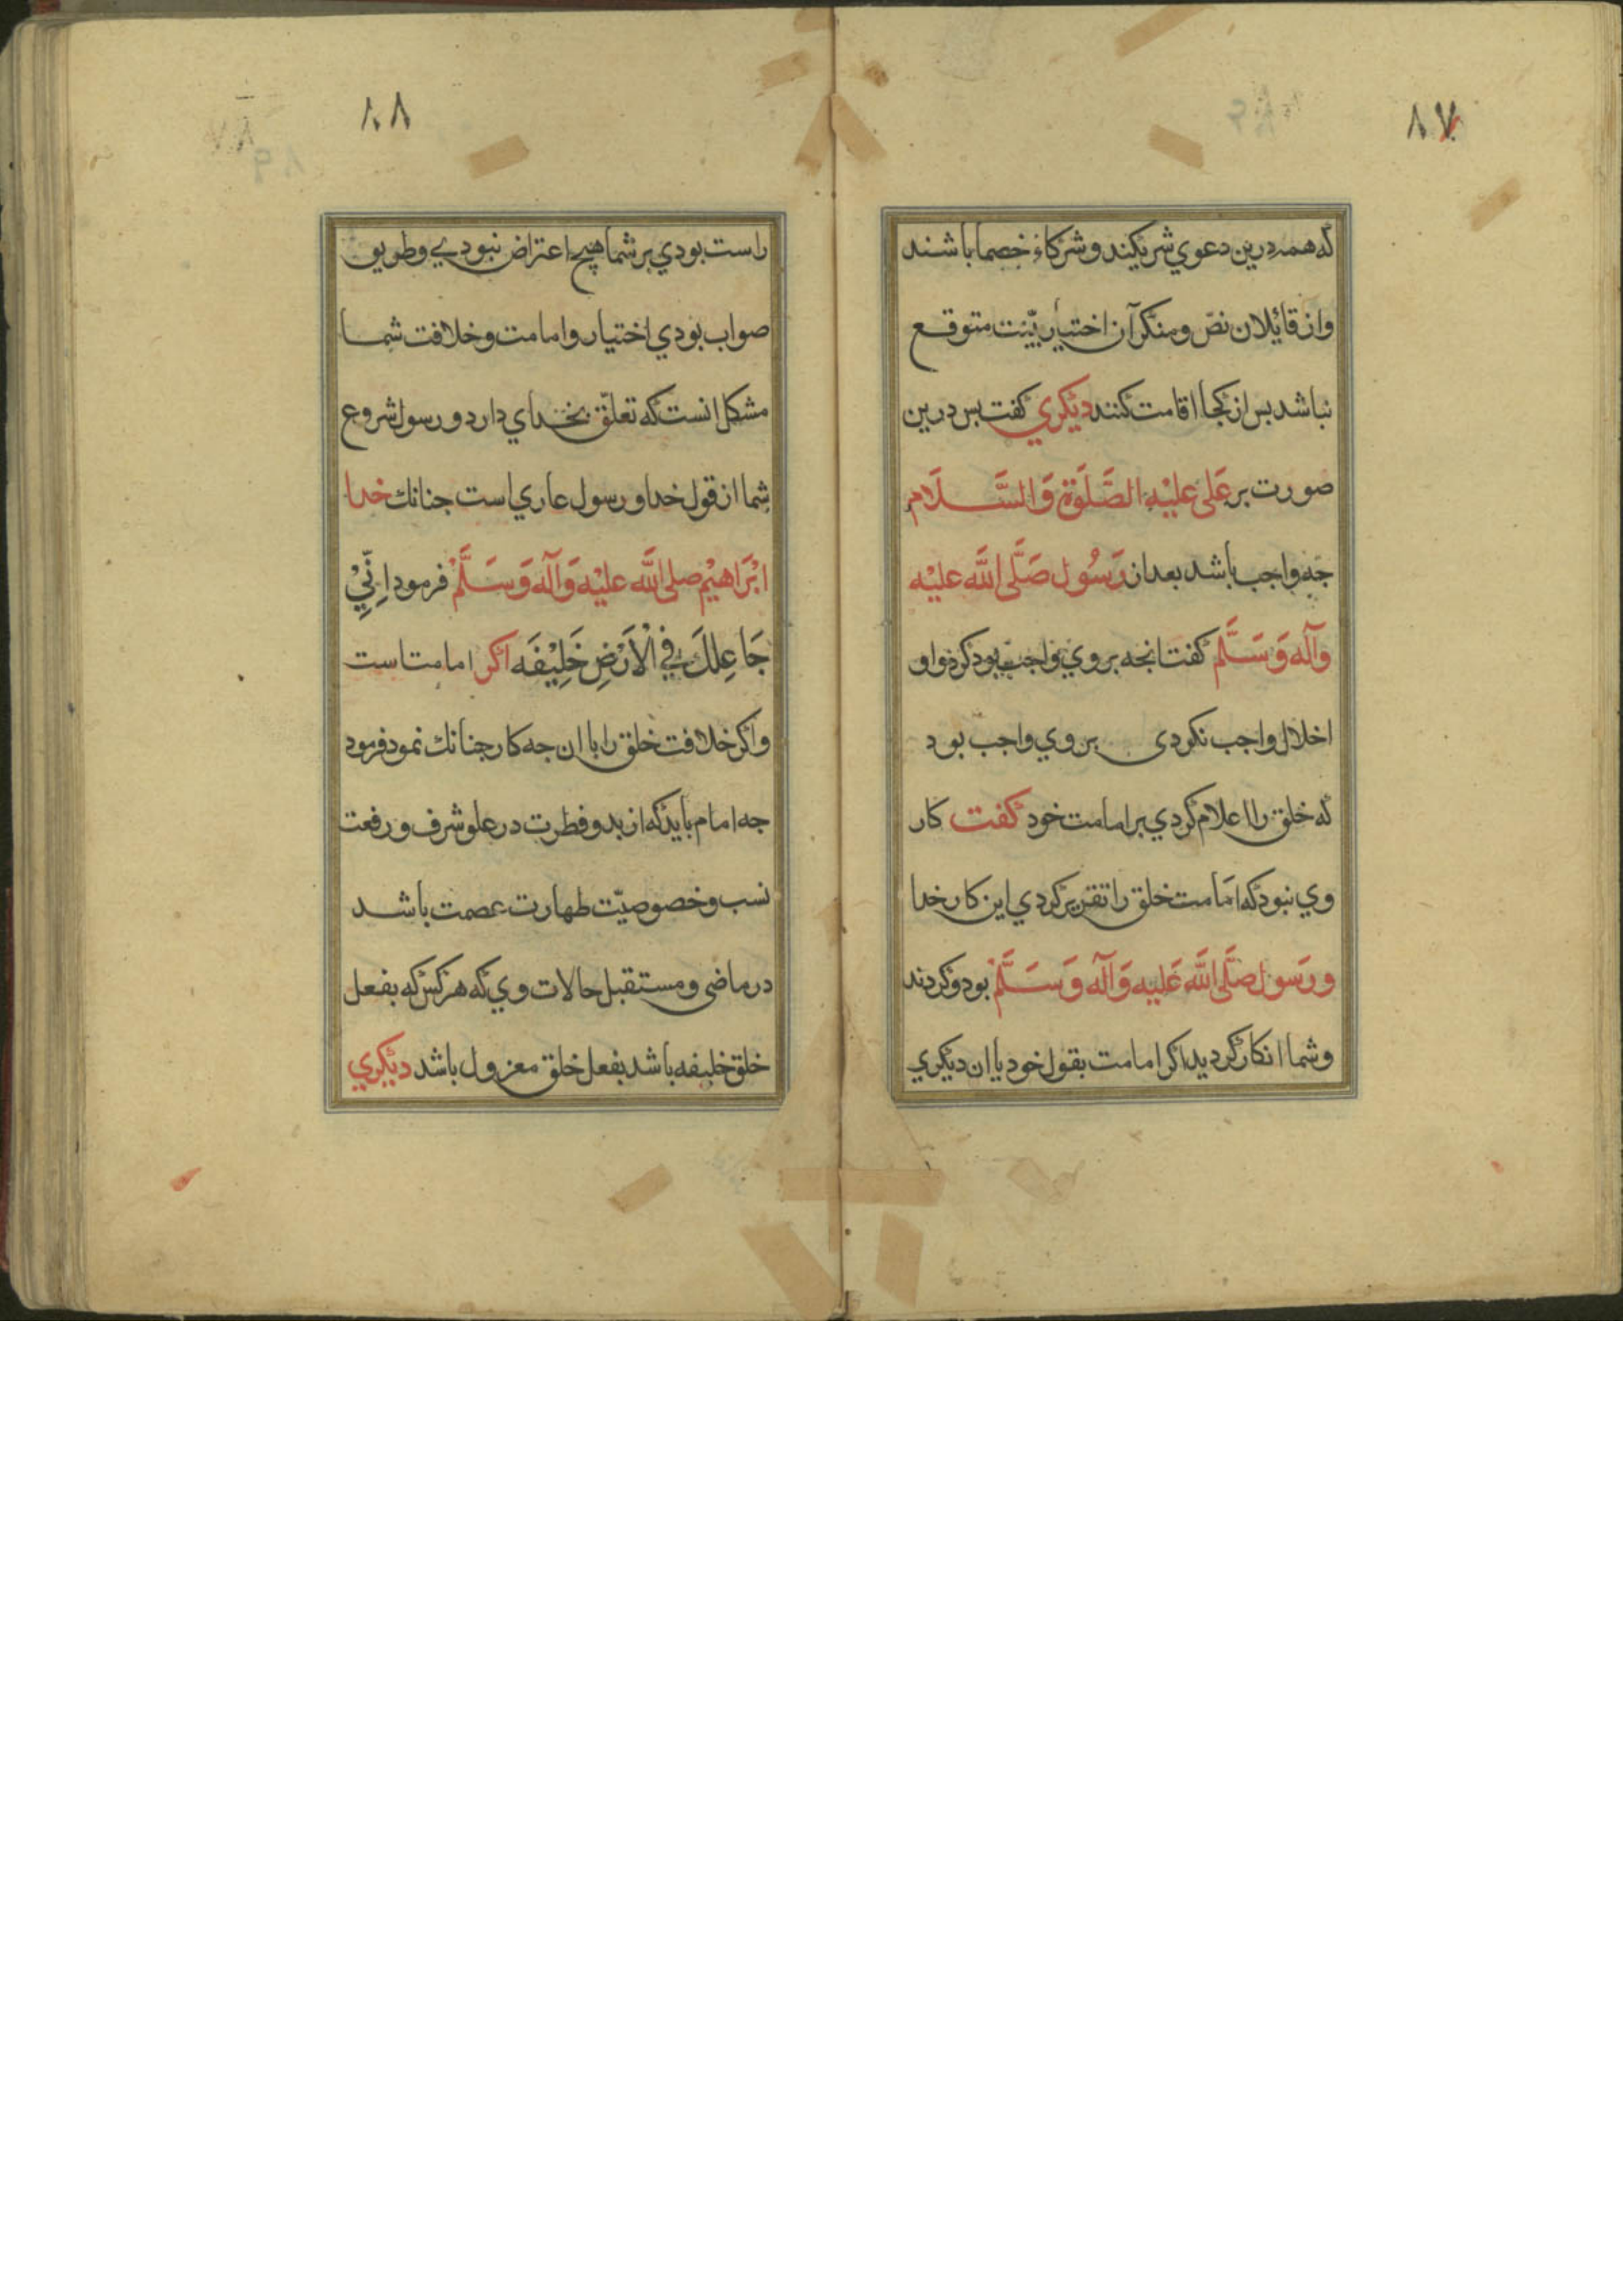 ۸۷
که همه درین دعوي شریکیند و شرکاء خصما باشند
واز قائلان نصّ و منکر آن اختیار بیّنت متوقع
نباشد بس از کجا اقامت کنند دیکري کفت بس درین
صورت بر عَلی علیْهِ الصَّلَوة وَالسَّلَام
جه واجب باشد بعد از رَسُول صَلَّی اللَّه علیْه
وَآلَه وَسَلَّم کفت انجه بر وي واجب بود کرد واو
اخلال واجب نکردی بر وي واجب بود
که خلق را اعلام کردي بر امامت خود کفت کار
وي نبود که امامت خلق را تقریر کردي این کار خدا
ورَسول صَلَّی اللَّه عَلیه وَآلَه وَسَلَّم بود و کردند
وشما انکار کردید اکر امامت بقول خود یا ان دیکري
۸۸
راست بودي بر شما هیچ اعتراض نبودے وطریق
صواب بودي اختیار وامامت وخلافت شما
مشکل انست که تعلّق بخداي دارد ورسول شروع
شما از قول خدا ورسول عاري است جنانك خدا
ابْرَاهیْم صلی اللَّه علیْه وَآلَه وَسَلَّمْ فرمود اِنّيْ
جَاعِلكَ فِي الْاَرْضِ خَلِیْفَه اکر امامت است
واکر خلافت خلق را با ان جه کار جنانك نمود فرمود
جه امام باید که از بدو فطرت در علو شرف ورفعت
نسب وخصوصیّت طهارت عصمت باشد
در ماضی ومستقبل حالات وي که هرکس که بفعل
خلق خلیفه باشد بفعل خلق معزول باشد دیکري